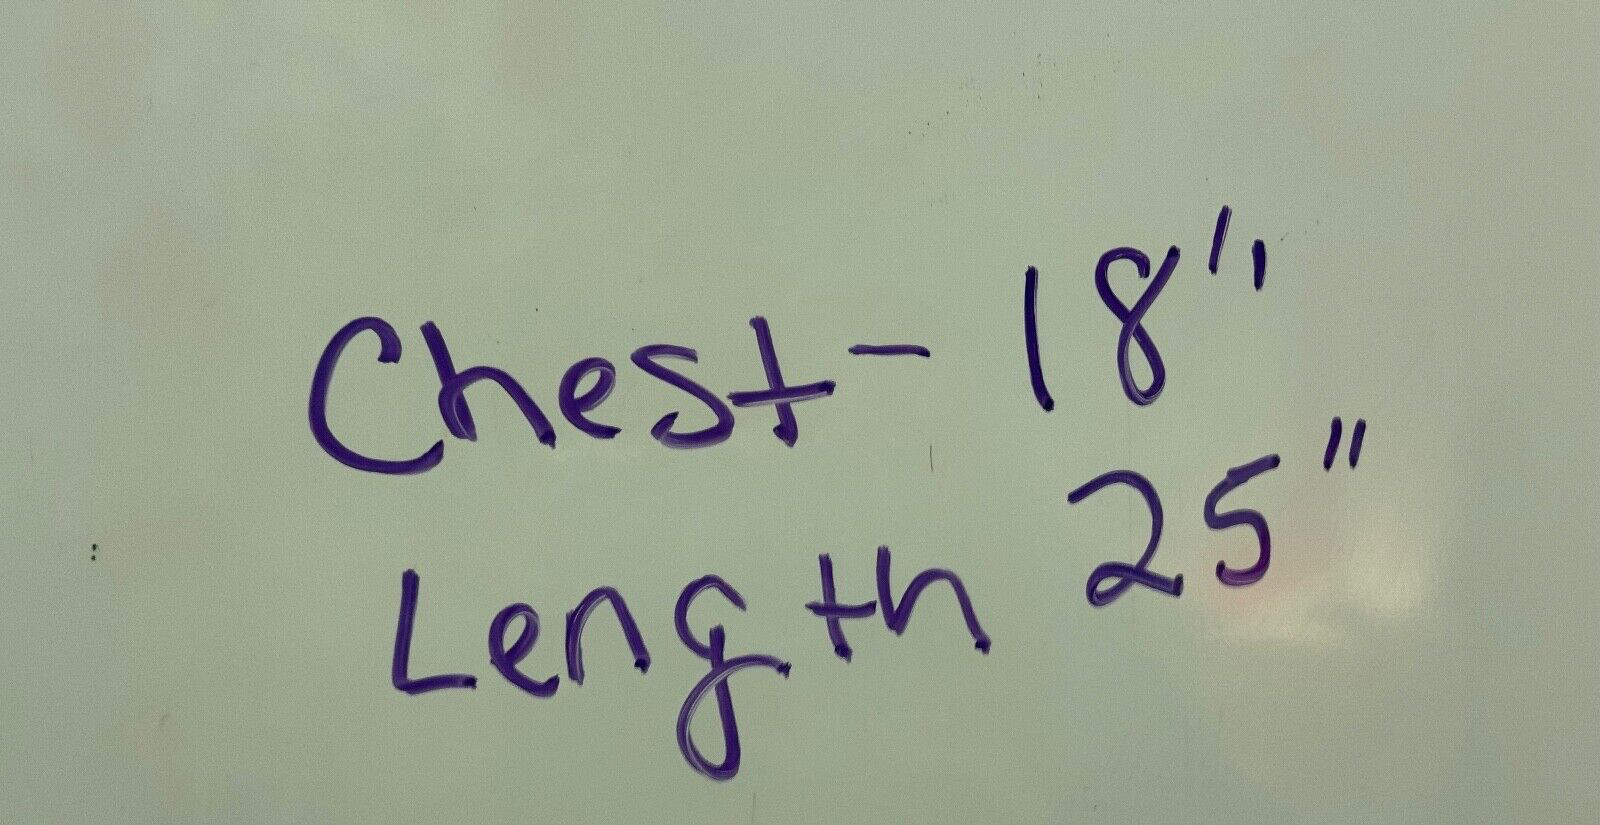 Chest - 18"
Length 25"